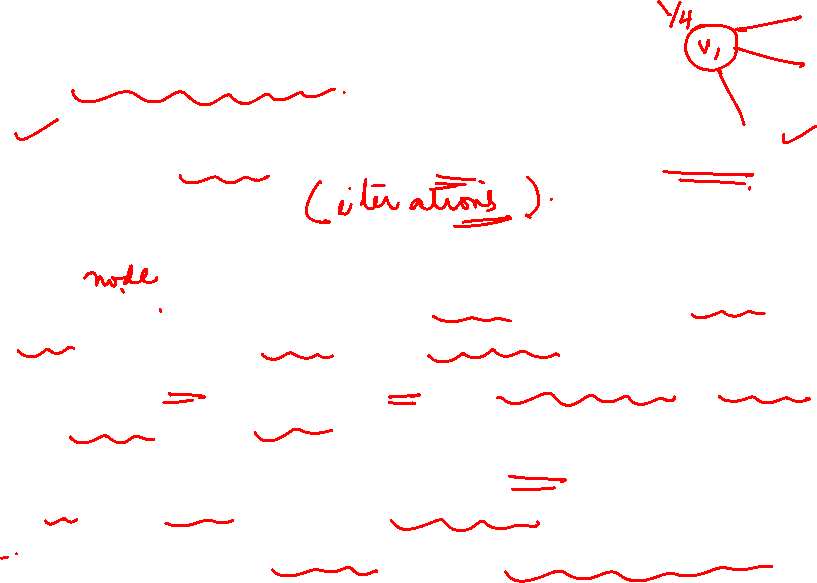 1/4
V1
(iterations).
node